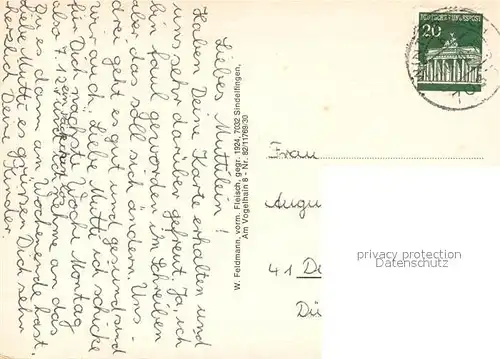 Liebes Muttilein!
Haben Deine Karte erhalten und
uns sehr darüber gefreut. Ja, ich
bin faul geworden im Schreiben
aber das soll sich ändern. Uns
drei geht es gut und gesund sind
wir auch. Liebe Mutti ich schicke
für Dich nächste Woche Montag
das
an das
Du es dann am Wochenende hast.
Liebe Mutti es grüssen Dich sehr
herzlich Deine Kinder.
W. Feldmann, vorm. Fleisch, gegr. 1924, 7032 Sindelfingen,
Am Vogelhain 8 - Nr. 82/11769/30
DEUTSCHE BUNDESPOST
20
Frau
Augu
41 De
Dü
privacy protection
watermark